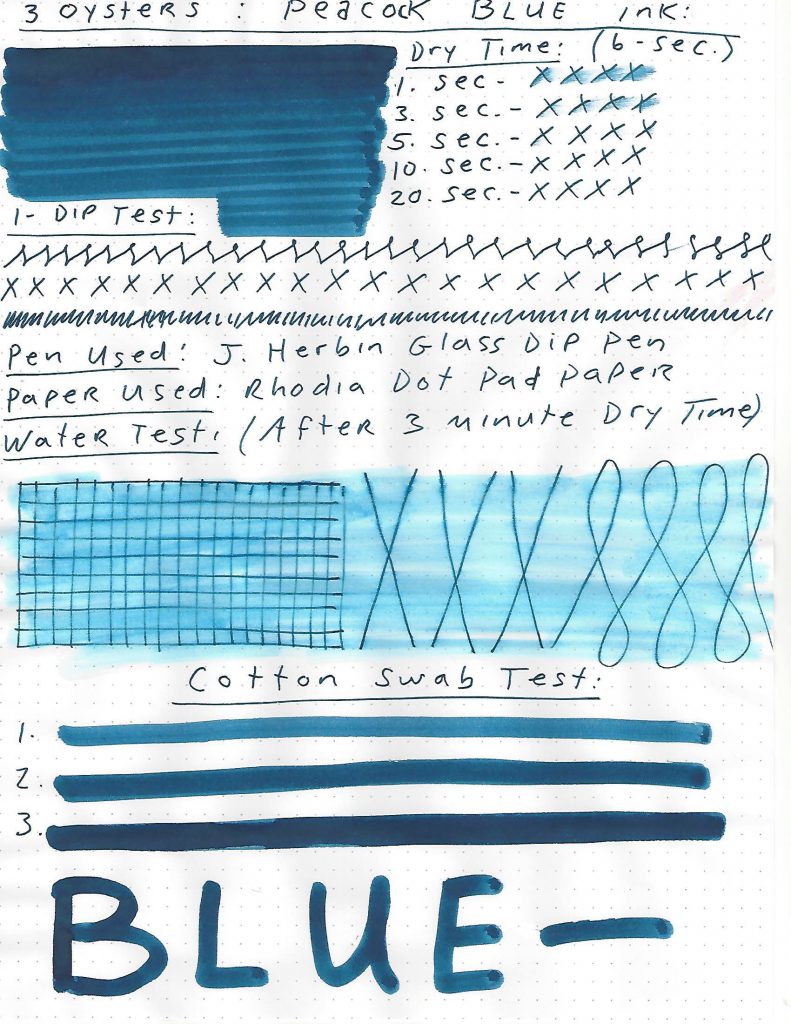 3 Oysters : Peacock Blue Ink:
Dry Time: (6-sec.)
1. sec- x x x x
3. sec.- x x x x
5. sec- x x x x
10. sec.- x x x x
20. sec.- x x x x
1- Dip Test:
x x x x x x x x x x x x x x x x x x x x x x x
Pen Used: J. Herbin Glass Dip Pen
Paper Used: Rhodia Dot Pad Paper
Water Test: (After 3 minute Dry Time)
Cotton Swab Test:
1.
2.
3.
BLUE—